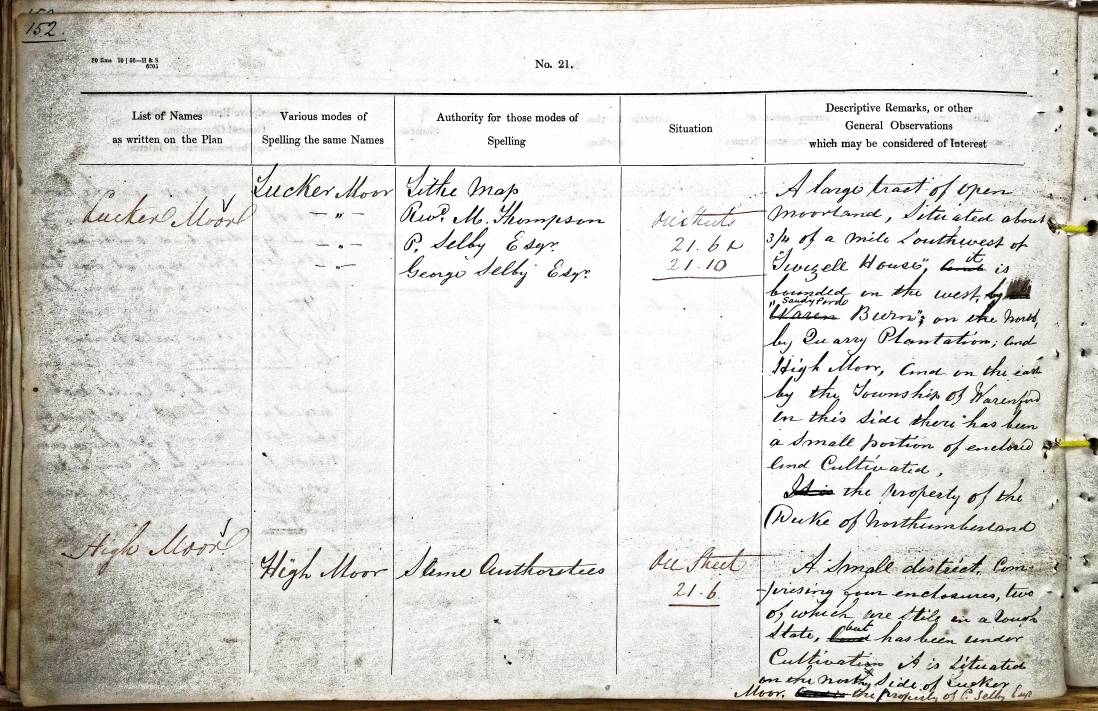 152.
No. 21.
List of Names as written on the Plan
Various modes of Spelling the same Names
Authority for those modes of Spelling
Situation
Descriptive Remarks, or other General Observations which may be considered of Interest
Lucker Moor
Lucker Moor
— " —
— " —
— " —
Tithe Map
Revd. M. Thompson
P. Selby Esqr.
George Selby Esqr.
21. 6
21. 10
A large tract of open
Moorland, Situated about
3/4 of a mile Southwest of
"Twizell House", it is
bounded on the west, by
"Sandyford Waren Burn"; on the North,
by Quarry Plantation; and
High Moor, and on the east
by the Township of Warenford
on this side there has been
a small portion of enclosed
and Cultivated,
It is the property of the
Duke of Northumberland
High Moor
High Moor
Same Authorities
Sheet
21. 6
A Small district, Com-
prising four enclosures, two
of which are still in a rough
State, but has been under
Cultivation It is Situated
on the north side of Lucker
Moor. the property of P. Selby Esqr